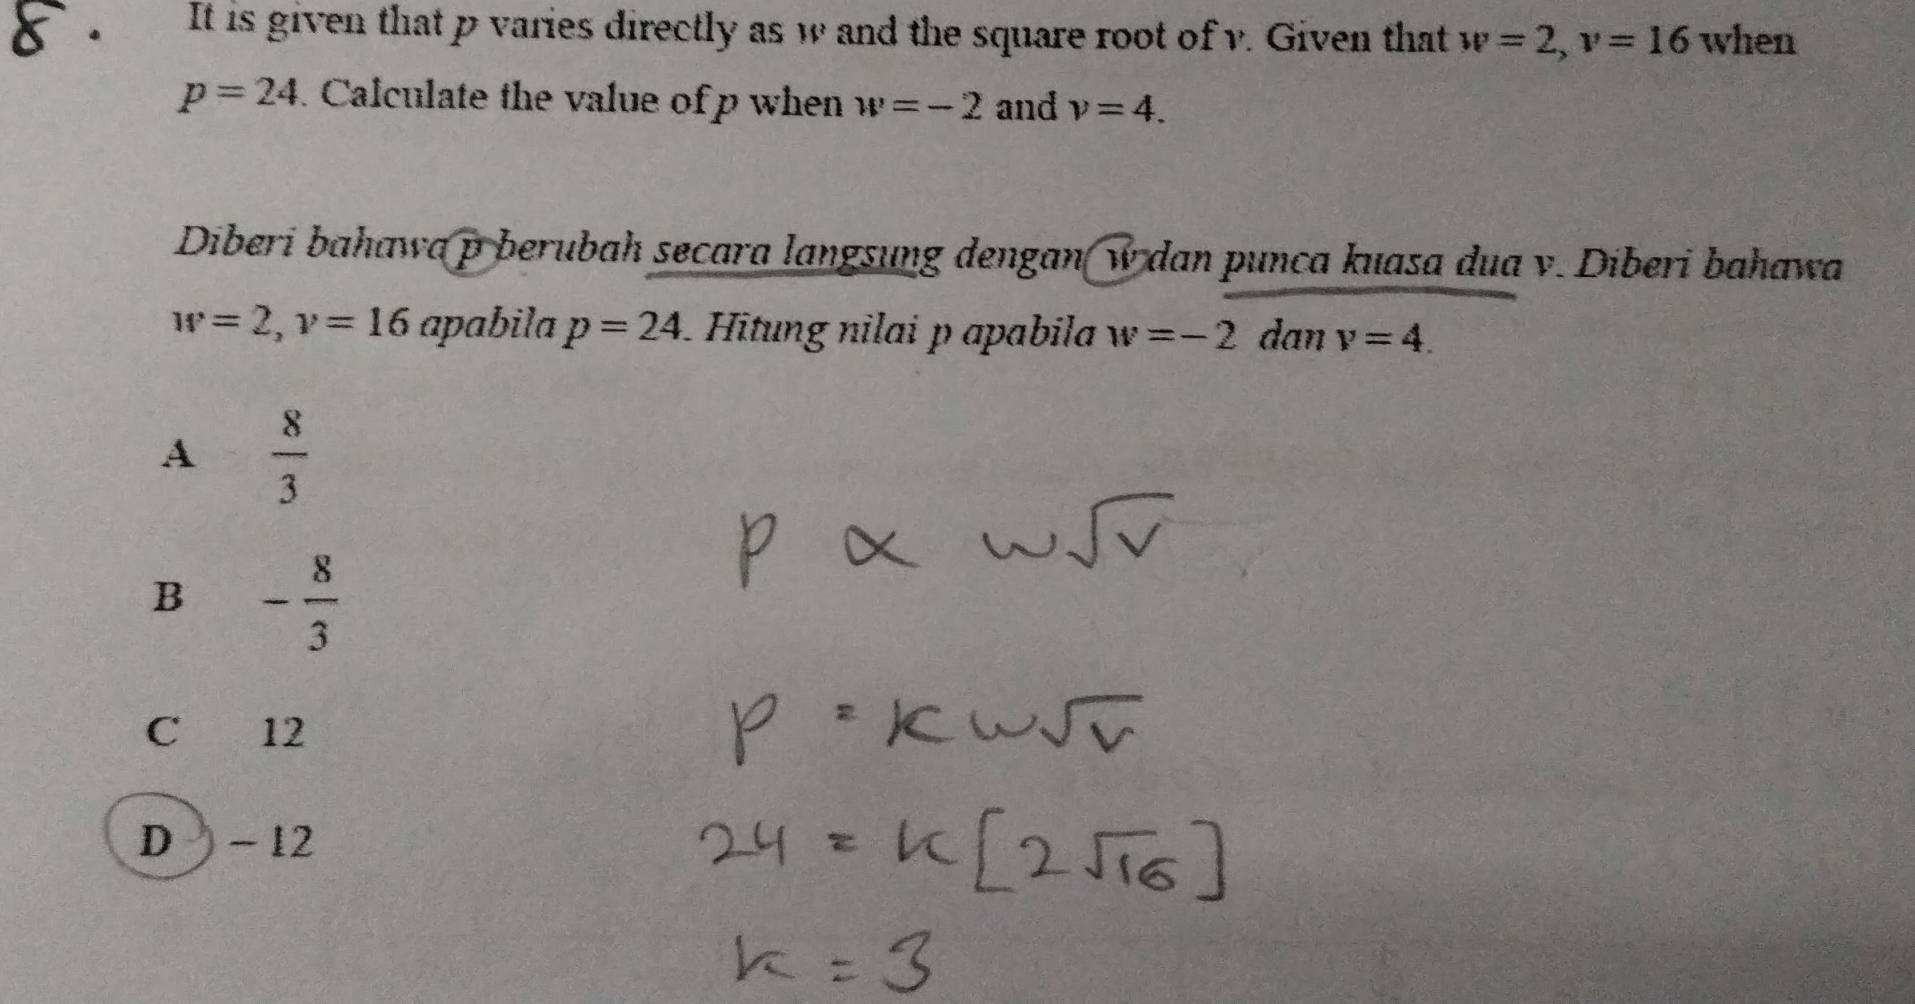 8. It is given that p varies directly as w and the square root of v. Given that w = 2, v = 16 when
p = 24. Calculate the value of p when w = – 2 and v = 4.
Diberi bahawa p berubah secara langsung dengan w dan punca kuasa dua v. Diberi bahawa
w = 2, v = 16 apabila p = 24. Hitung nilai p apabila w = – 2 dan v = 4.
A 8/3
B – 8/3
C 12
D – 12
p ∝ w√v
p = kw√v
24 = k[2√16]
k = 3